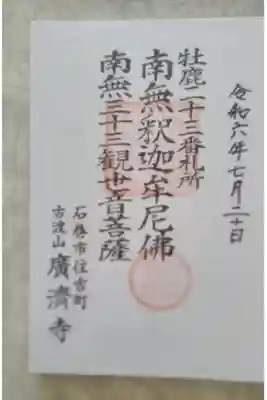 令和六年七月二十日
牡鹿二十三番札所
南無釋迦牟尼佛
南無三十三観世音菩薩
石巻市住吉町
古渡山 廣濟寺